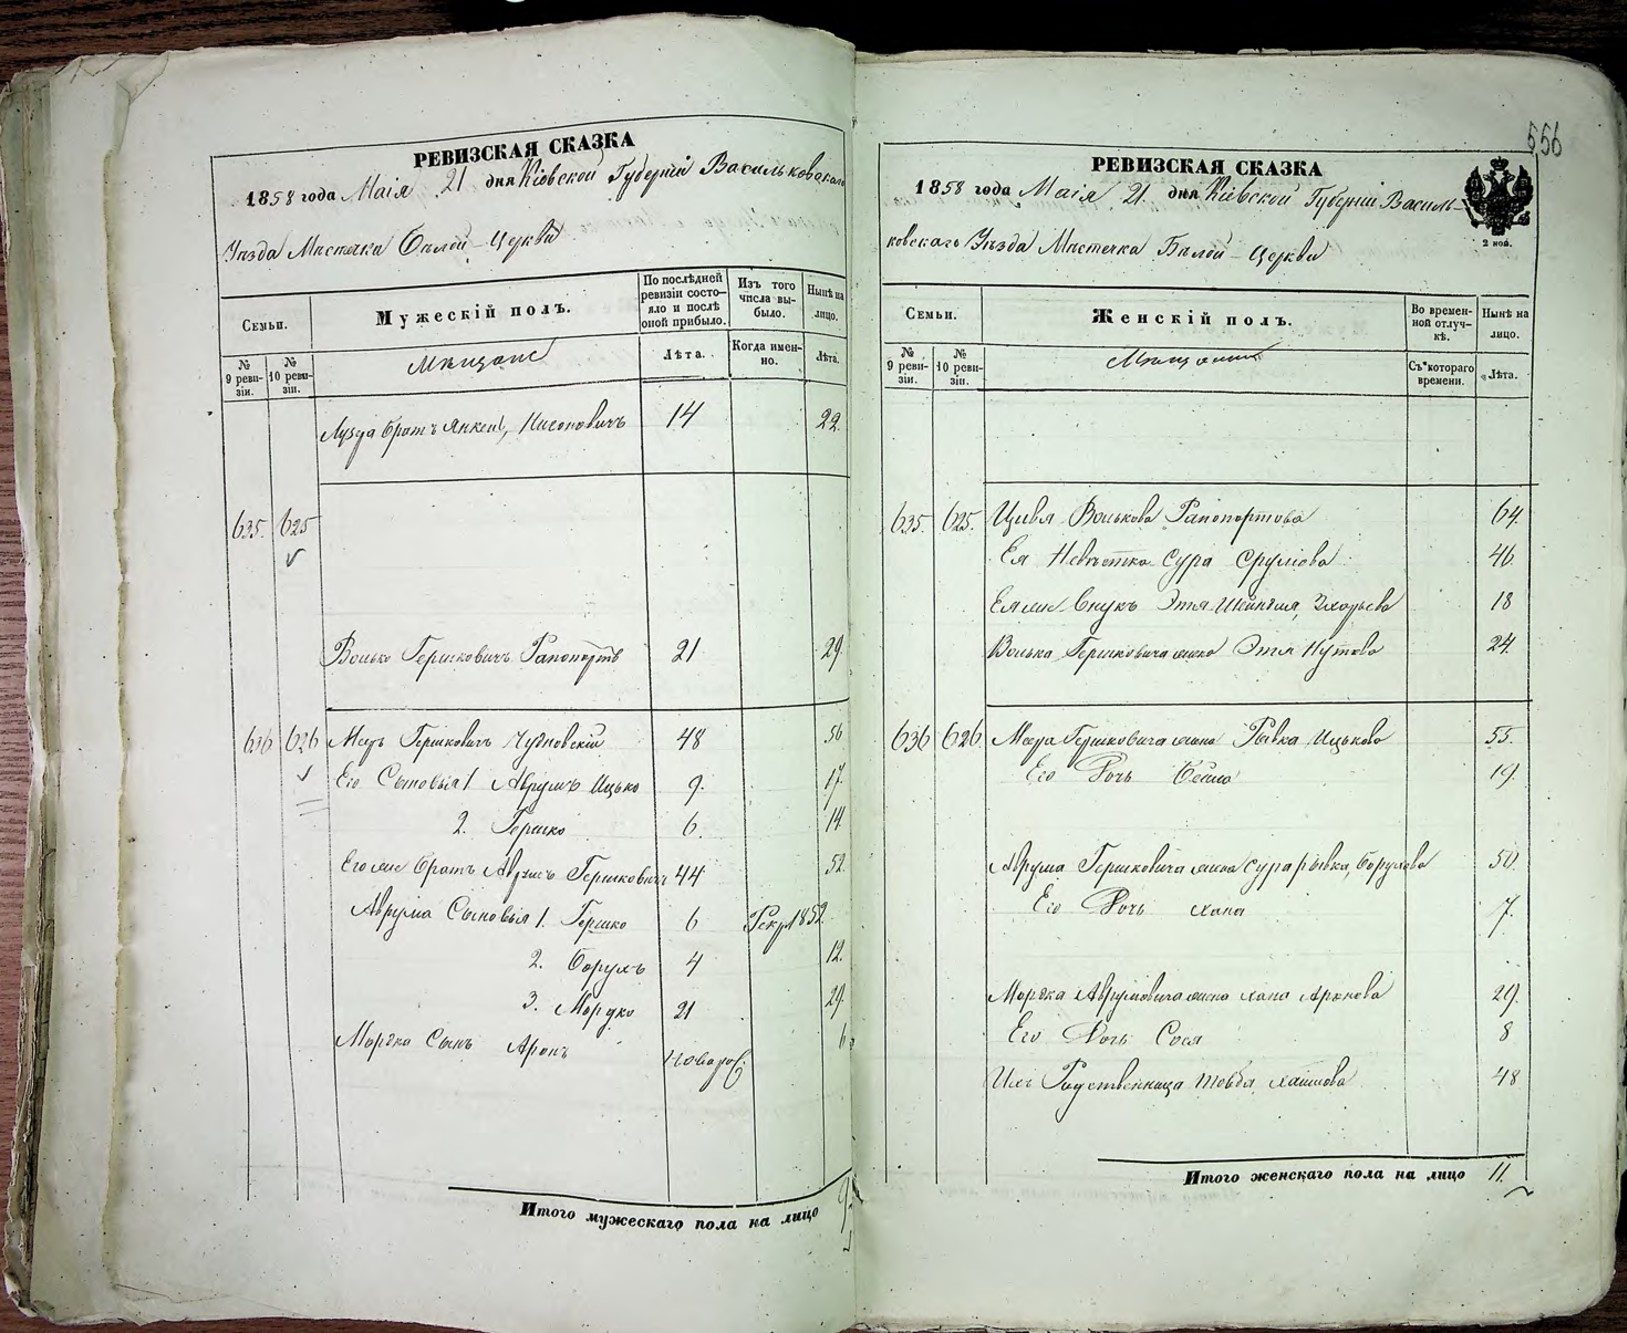 РЕВИЗСКАЯ СКАЗКА
1858 года Маія 21 дня Кіевской Губерніи Васильковскаго
Уѣзда Мѣстечка Бѣлой-Церкви
Семьи.
Мужескій полъ.
По послѣдней ревизіи состо-
яло и послѣ
оной прибыло.
Изъ того
числа вы-
было.
Нынѣ на
лицо.
№
9 реви-
зіи.
№
10 реви-
зіи.
Мѣщане
Лѣта.
Когда имен-
но.
Лѣта.
братъ Янкель, 14 22.
635. 625
Волько Гершковичъ Рапопортъ 21 29.
636 626 Меръ Гершковичъ Чудновскій 48 56
Его Сыновья 1 Аврумъ Ицько 9. 17.
2. Гершко 6. 14
Его же братъ Аврумъ Гершковичъ 44 52.
Аврума Сыновья 1. Гершко 6 Рекр. 1852.
2. Борухъ 4 12.
3. Мордко 21 29
Мордка Сынъ Аронъ новорож. 6
Итого мужескаго пола на лицо 9.
556
РЕВИЗСКАЯ СКАЗКА
1858 года Маія 21. дня Кіевской Губерніи Василь-
ковскаго Уѣзда Мѣстечка Бѣлой-Церкви
2 коп.
Семьи.
Женскій полъ.
Во времен-
ной отлуч-
кѣ.
Нынѣ на
лицо.
№
9 реви-
зіи.
№
10 реви-
зіи.
Мѣщанки
Съ котораго
времени.
Лѣта.
635. 625. Цивя Волькова Рапопортова 64.
Ея Невѣстка Сура Срулова 46.
Ея же Внукъ Этя Шейндля, 18
Волька Гершковича жена Этя Нутова 24.
636 626. Меера Гершковича жена Рывка Ицькова 55.
Его Дочь Бейла 19.
Аврума Гершковича жена Сура рывка, Борухова 50.
Его Дочь Хана 7.
Мордка Аврумовича жена Хана Аронова 29.
Его Дочь Сося 8
Ихъ Родственница Товба Хаимова 48
Итого женскаго пола на лицо 11.